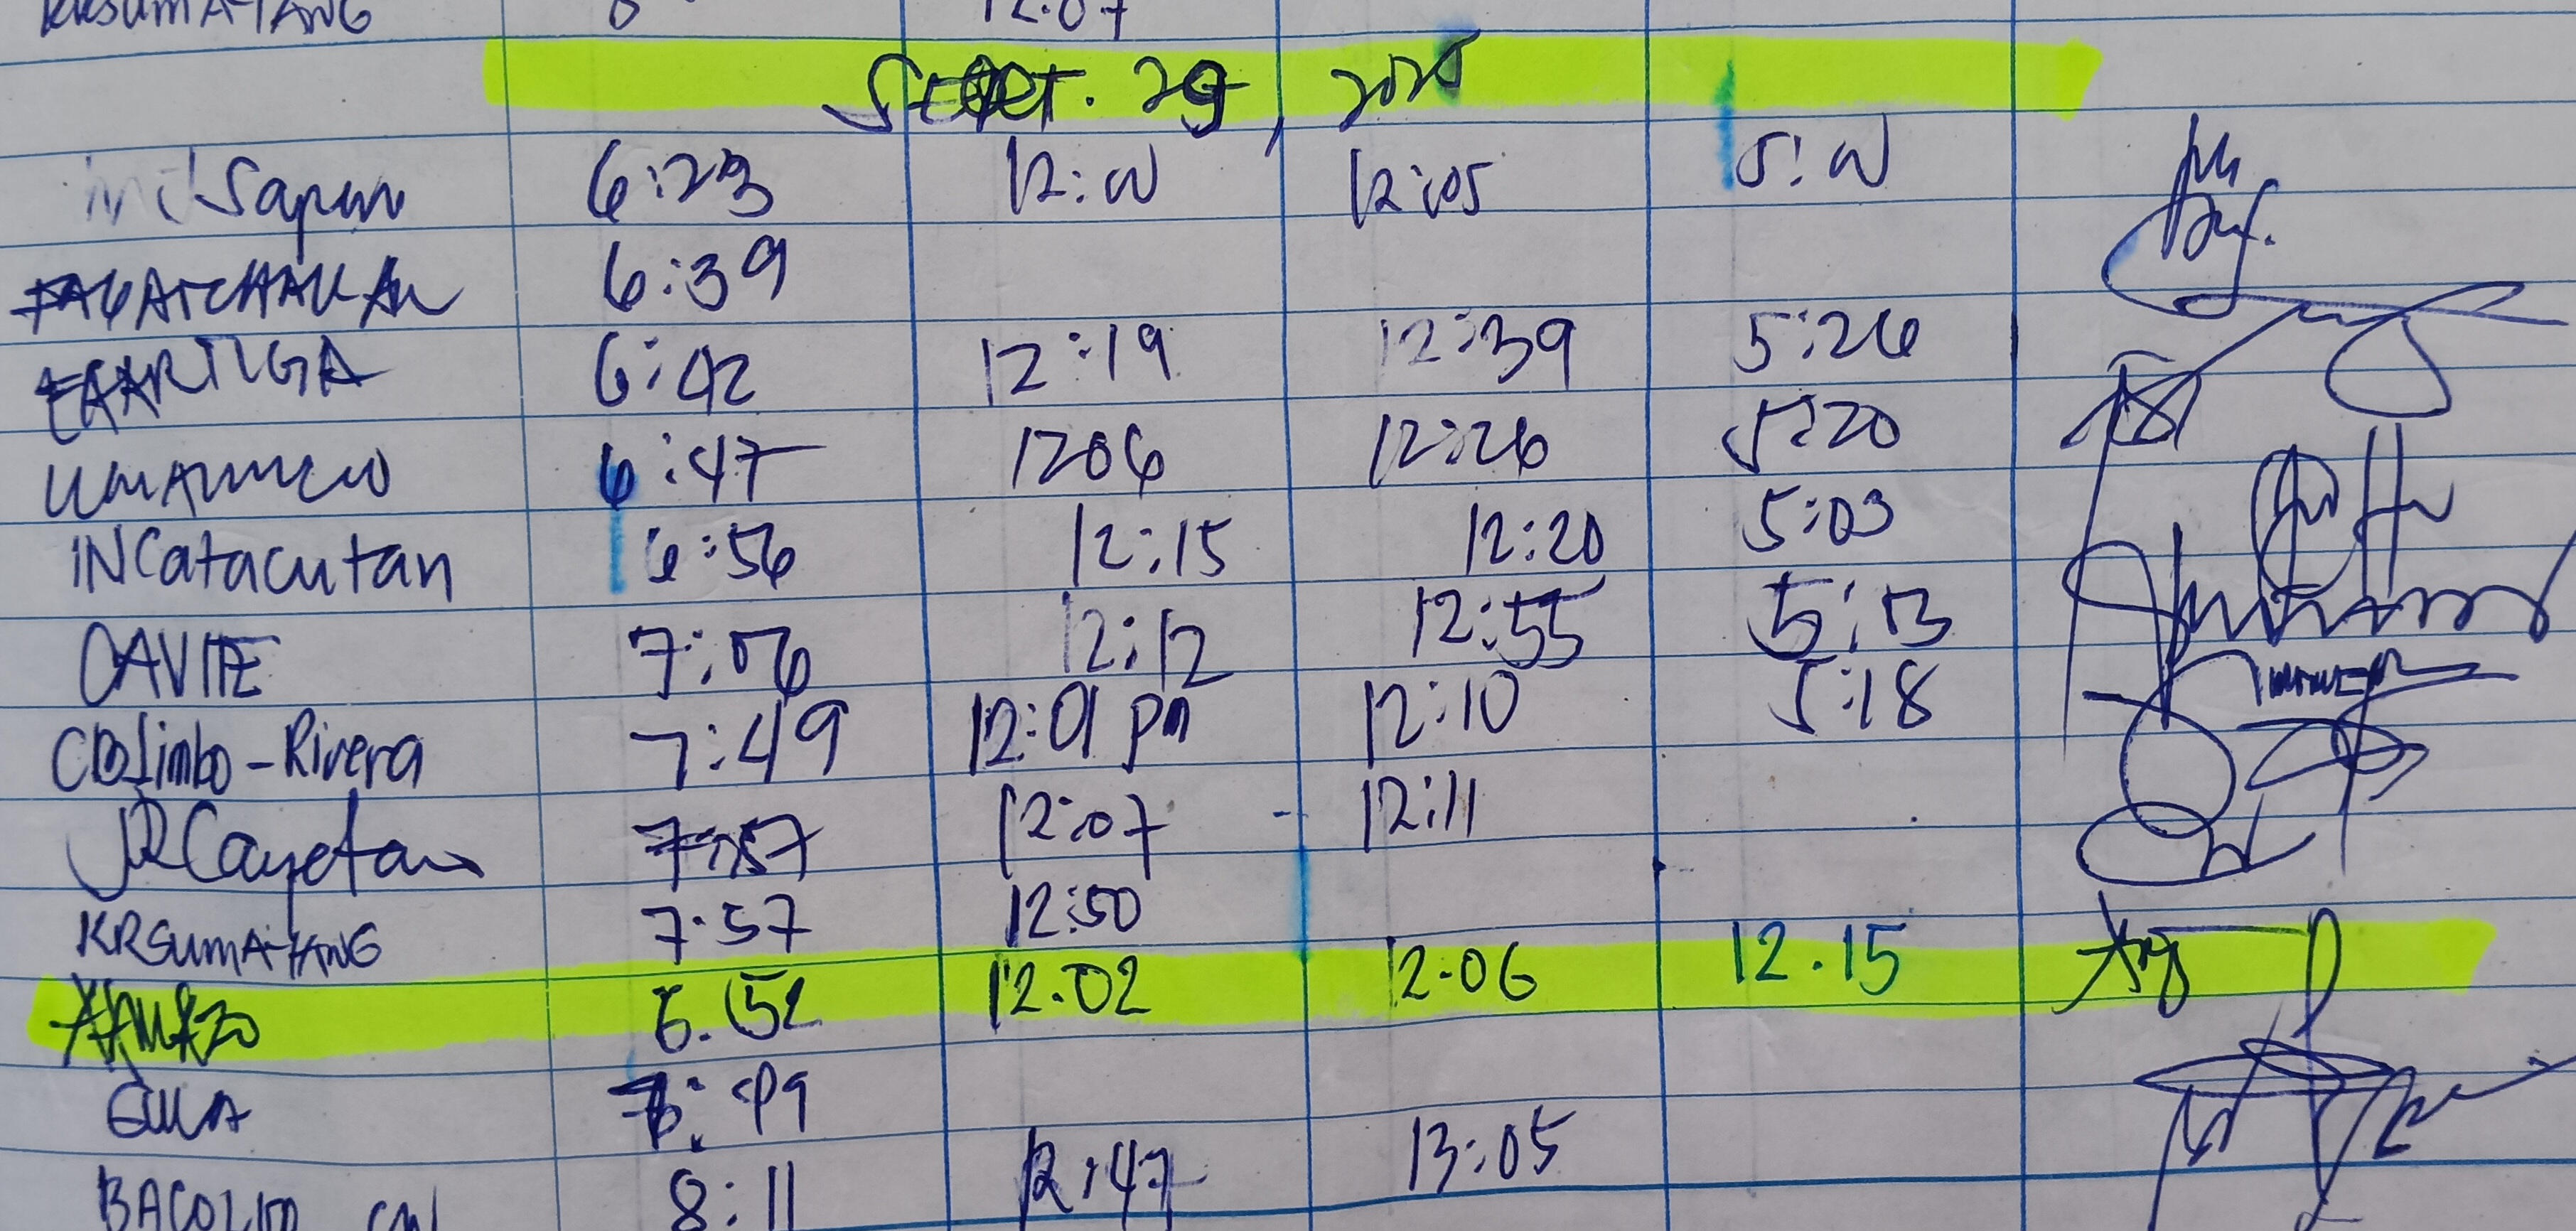 KRSUMATANG 8 12.07
SEPT. 29, 2025
Sapin 6:23 12:00 12:05 5:00
6:39
EAARTIGA 6:42 12:19 12:39 5:26
6:47 1206 12:26 5:20
INCatacutan 6:56 12:15 12:20 5:03
CAVITE 7:06 12:12 12:55 5:13
CDLimbo-Rivera 7:49 12:01 pm 12:10 5:18
JRCayetano 7:57 12:07 - 12:11
KRSUMATANG 7:57 12:50
6.52 12.02 12.06 12.15
8:11 12:47 13:05